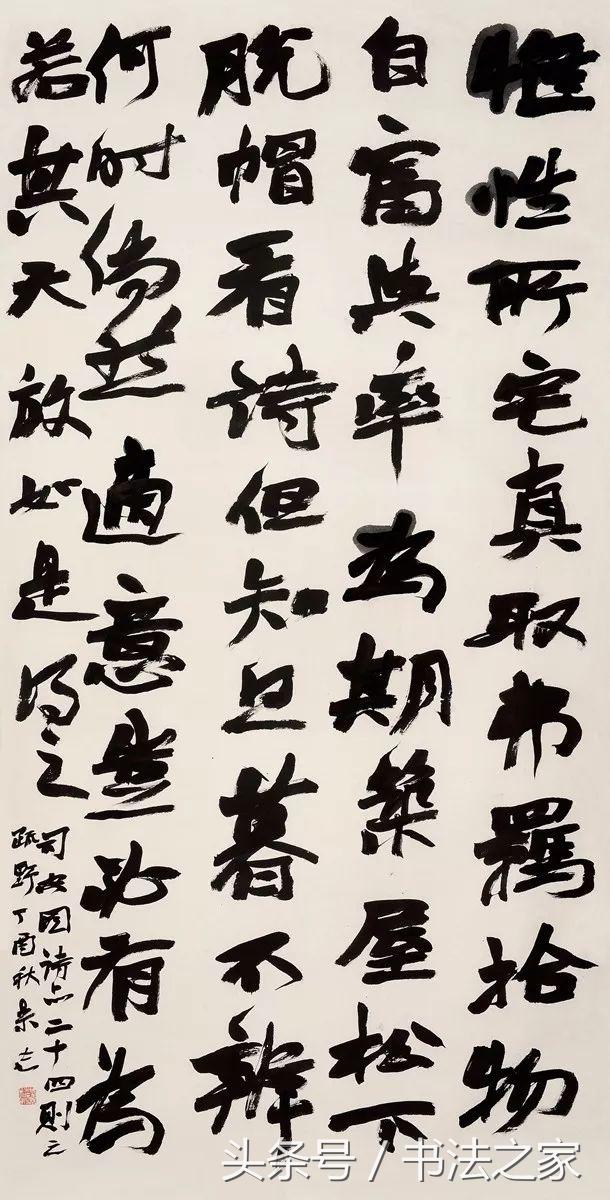 惟性所宅真取弗羈拾物
自富與率為期築屋松下
脱帽看诗但知旦暮不辨
何时倘然適意豈必有為
若其天放如是得之
司空图诗品二十四則之
疏野丁酉秋
头条号 / 书法之家